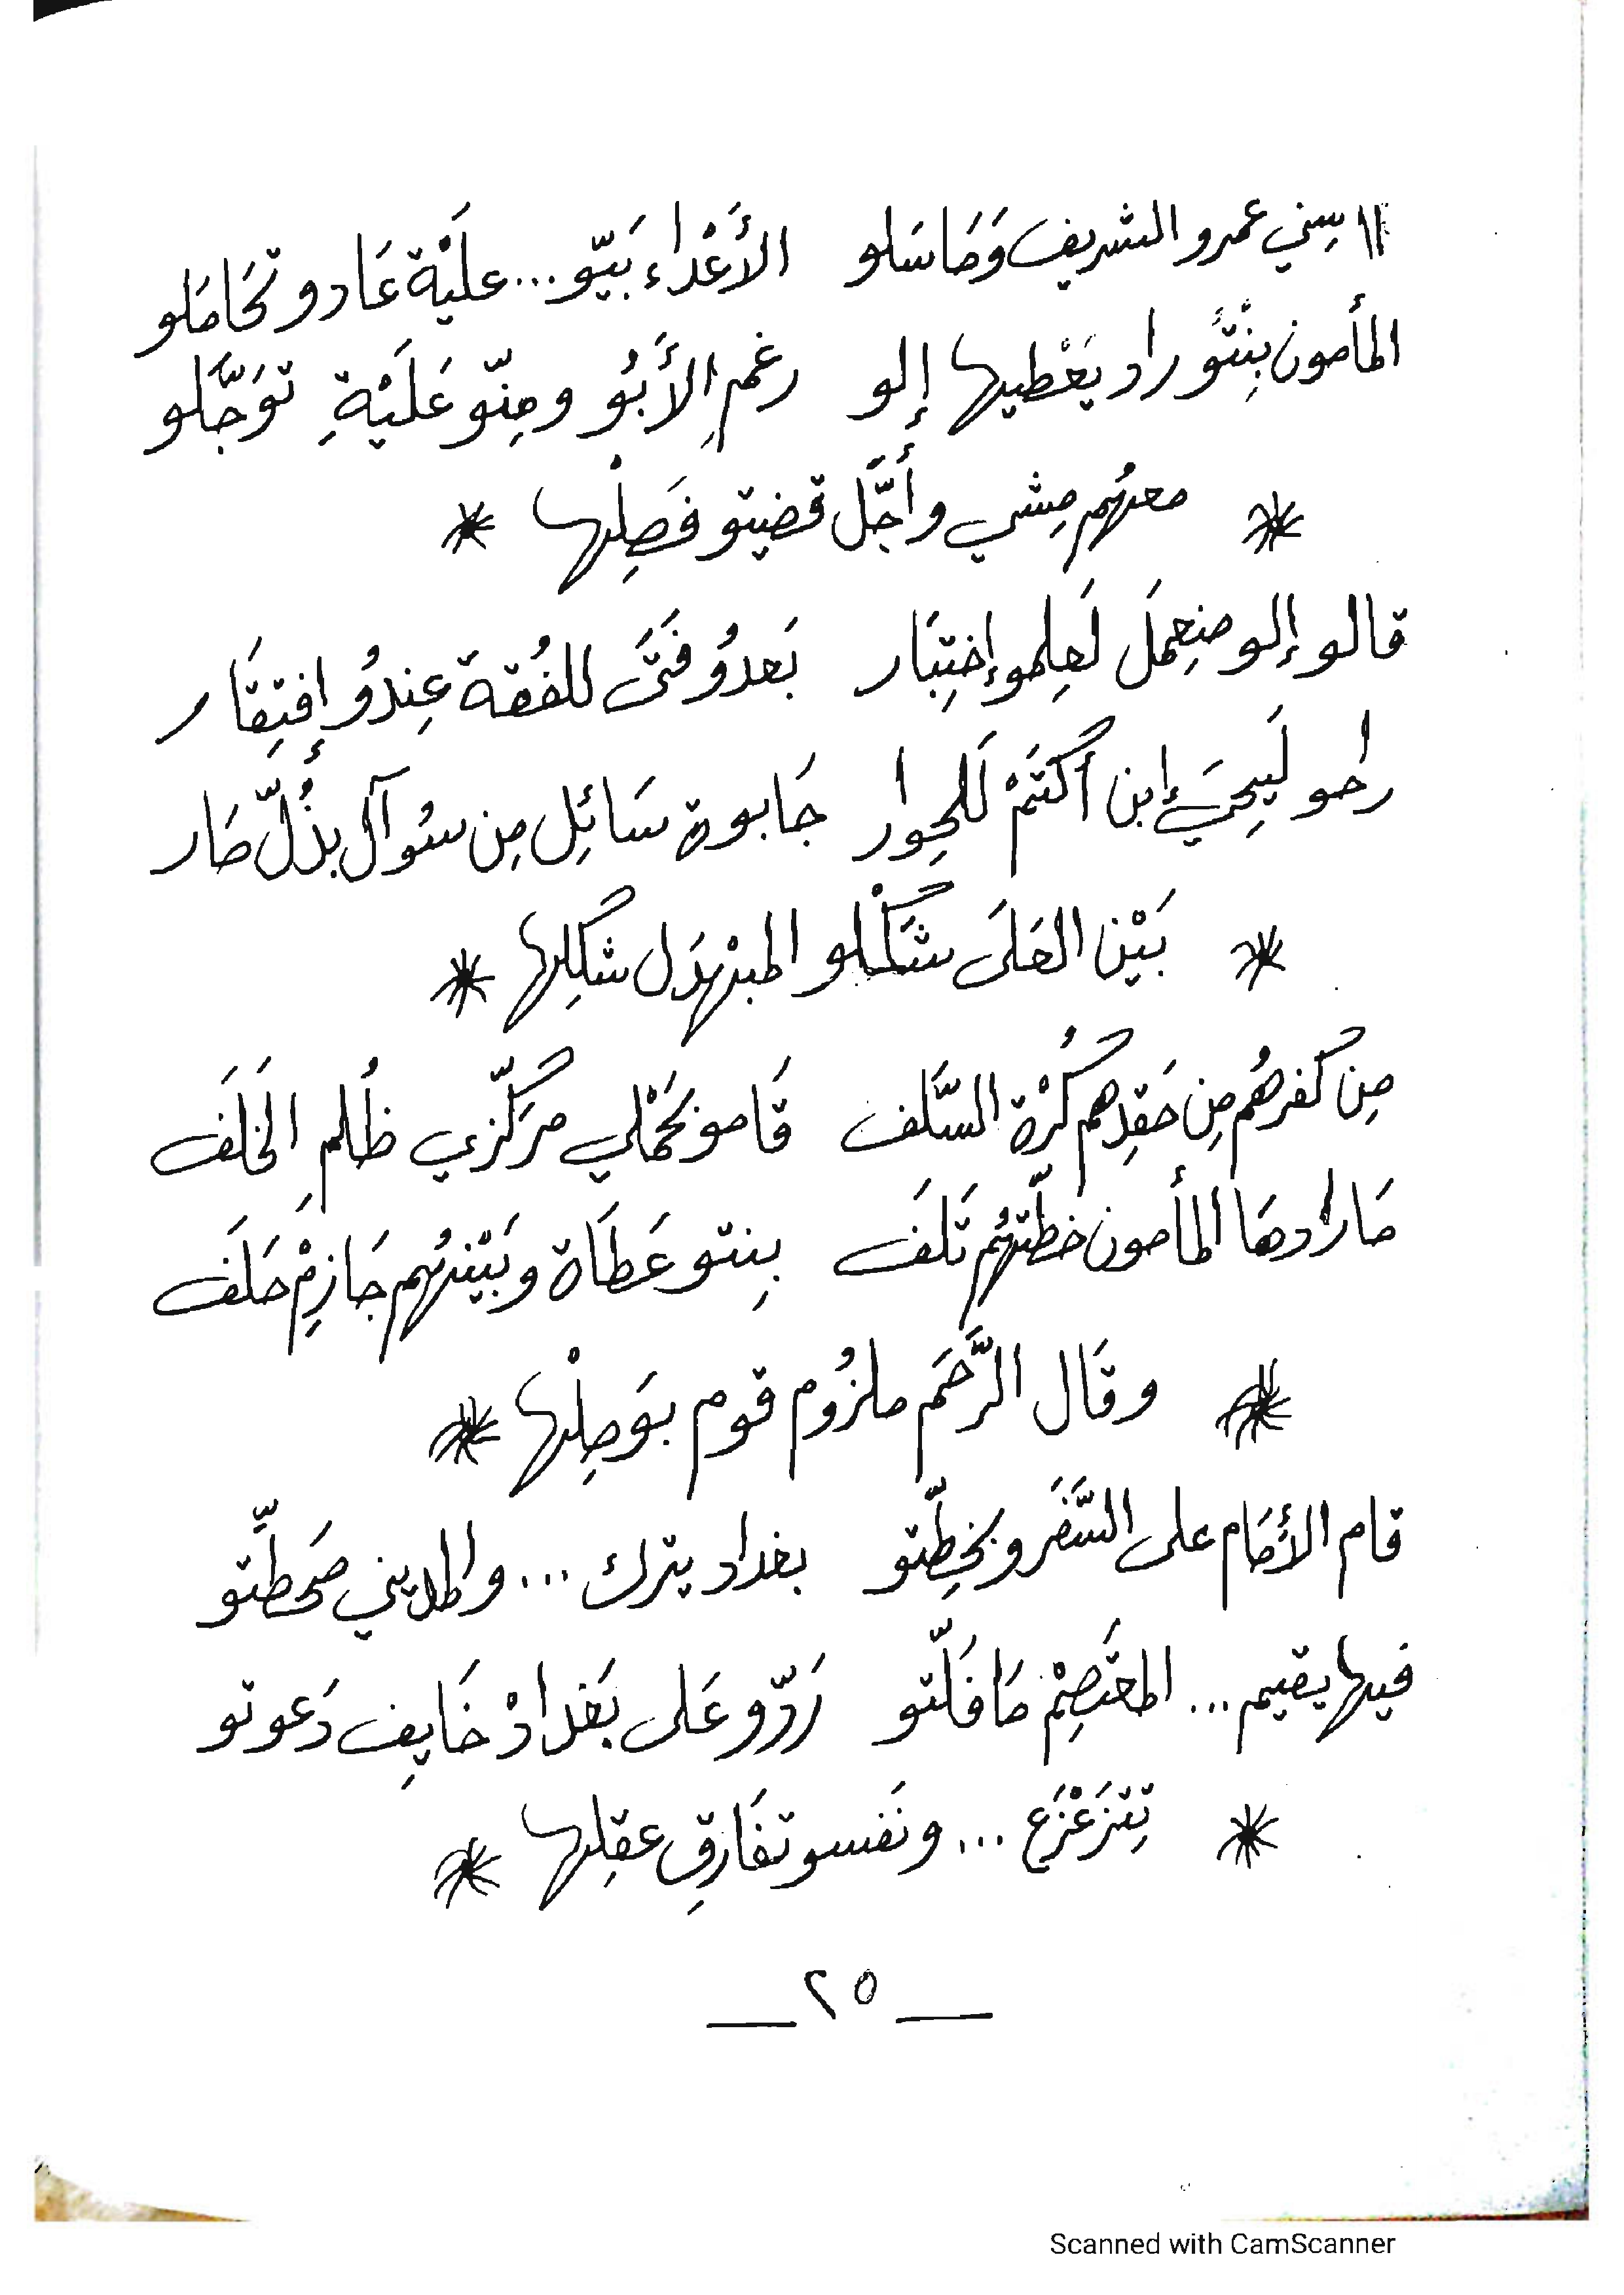 ١١ سِني عمرو الشريف وَصَا سَلو الأَعْداء بَيّو... عليْة عَادو تحَامَلو
المأمون بِنْتُو راد يَعْطيها إلو رغمِ الأَبُو ومِنّو عَلَيْةِ توَجَّلو
* معهُم مِشي وأَجَّل قضيتو فَصِلْها *
قالو إلو منِعِملَ لَعِلمو إختِبَار بَعدوُ فَتَىَ للفُقة عِندوُ إفتِقَار
راحو لَيِحيَ إبن أكتَمْ لَلحِوار جَابوة سَائِل مِن سئوآل بذُلّ صَار
* بَيْن المَلىَ شَكْلو المبْهدَل شكِلها *
مِن كُفرهُم مِن حَقدِهم كُرْة السَّلف قَامو بحَمْلي مرَكّزي ظُلمِ الخَلَف
مَا رادها المأمون خطّتهُم تَلَف بِنتو عَطَاة وبَيْنهُم جَازِمْ حَلَف
* وقَال الرَّحَم ملزُوم قوم بوَصِلْها *
قام الأمَام على السَّفَر وبخِطّتو بغداد يترك ... والمديني محَطّتو
فيها يقيم ... المعتَصِمْ مَا فَلّتو رَدّو عَلى بَغدادْ خَايِف دَعوتو
* تِتزَعْزَع ... ونَفسو تفَارِق عقِلها *
٢٥
Scanned with CamScanner